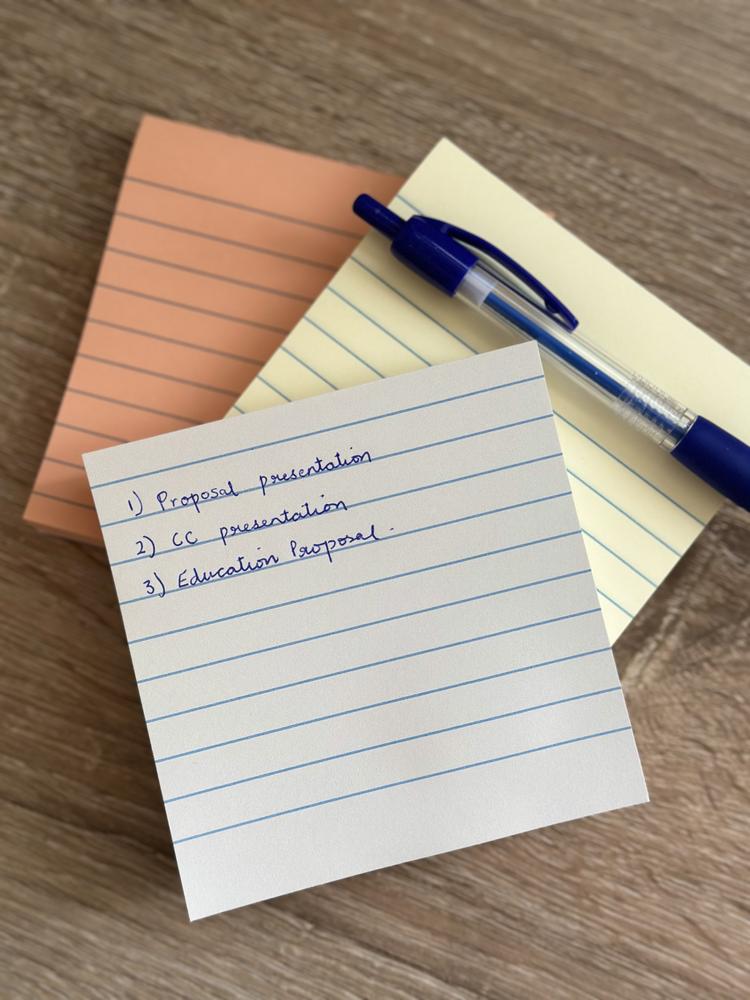 1) Proposal presentation
2) CC presentation
3) Education Proposal.